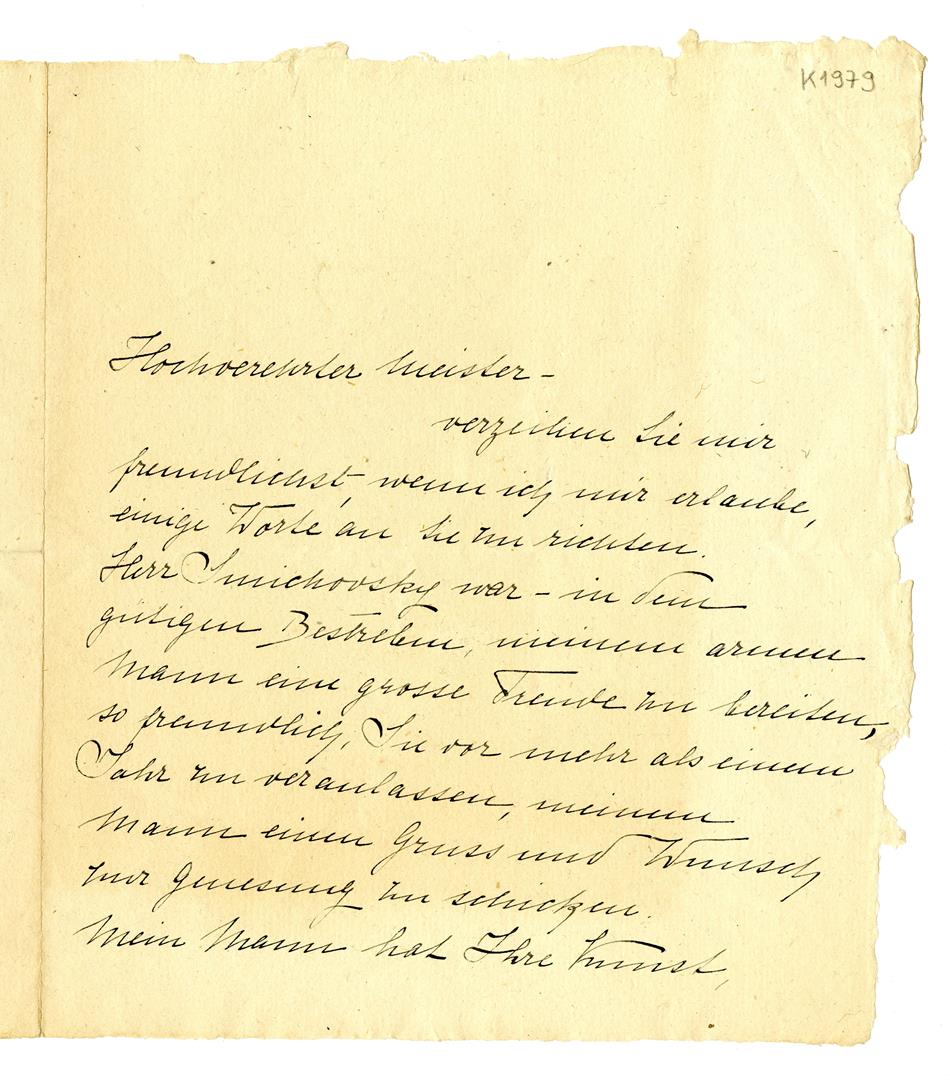 K1979
Hochverehrter Meister –
verzeihen Sie mir
freundlichst, wenn ich mir erlaube,
einige Worte an Sie zu richten.
Herr Smichovsky war – in dem
gütigen Bestreben, meinem armen
Mann eine grosse Freude zu bereiten,
so freundlich, Sie vor mehr als einem
Jahr zu veranlassen, meinem
Mann einen Gruss und Wunsch
zur Genesung zu schicken.
Mein Mann hat Ihre Kunst,